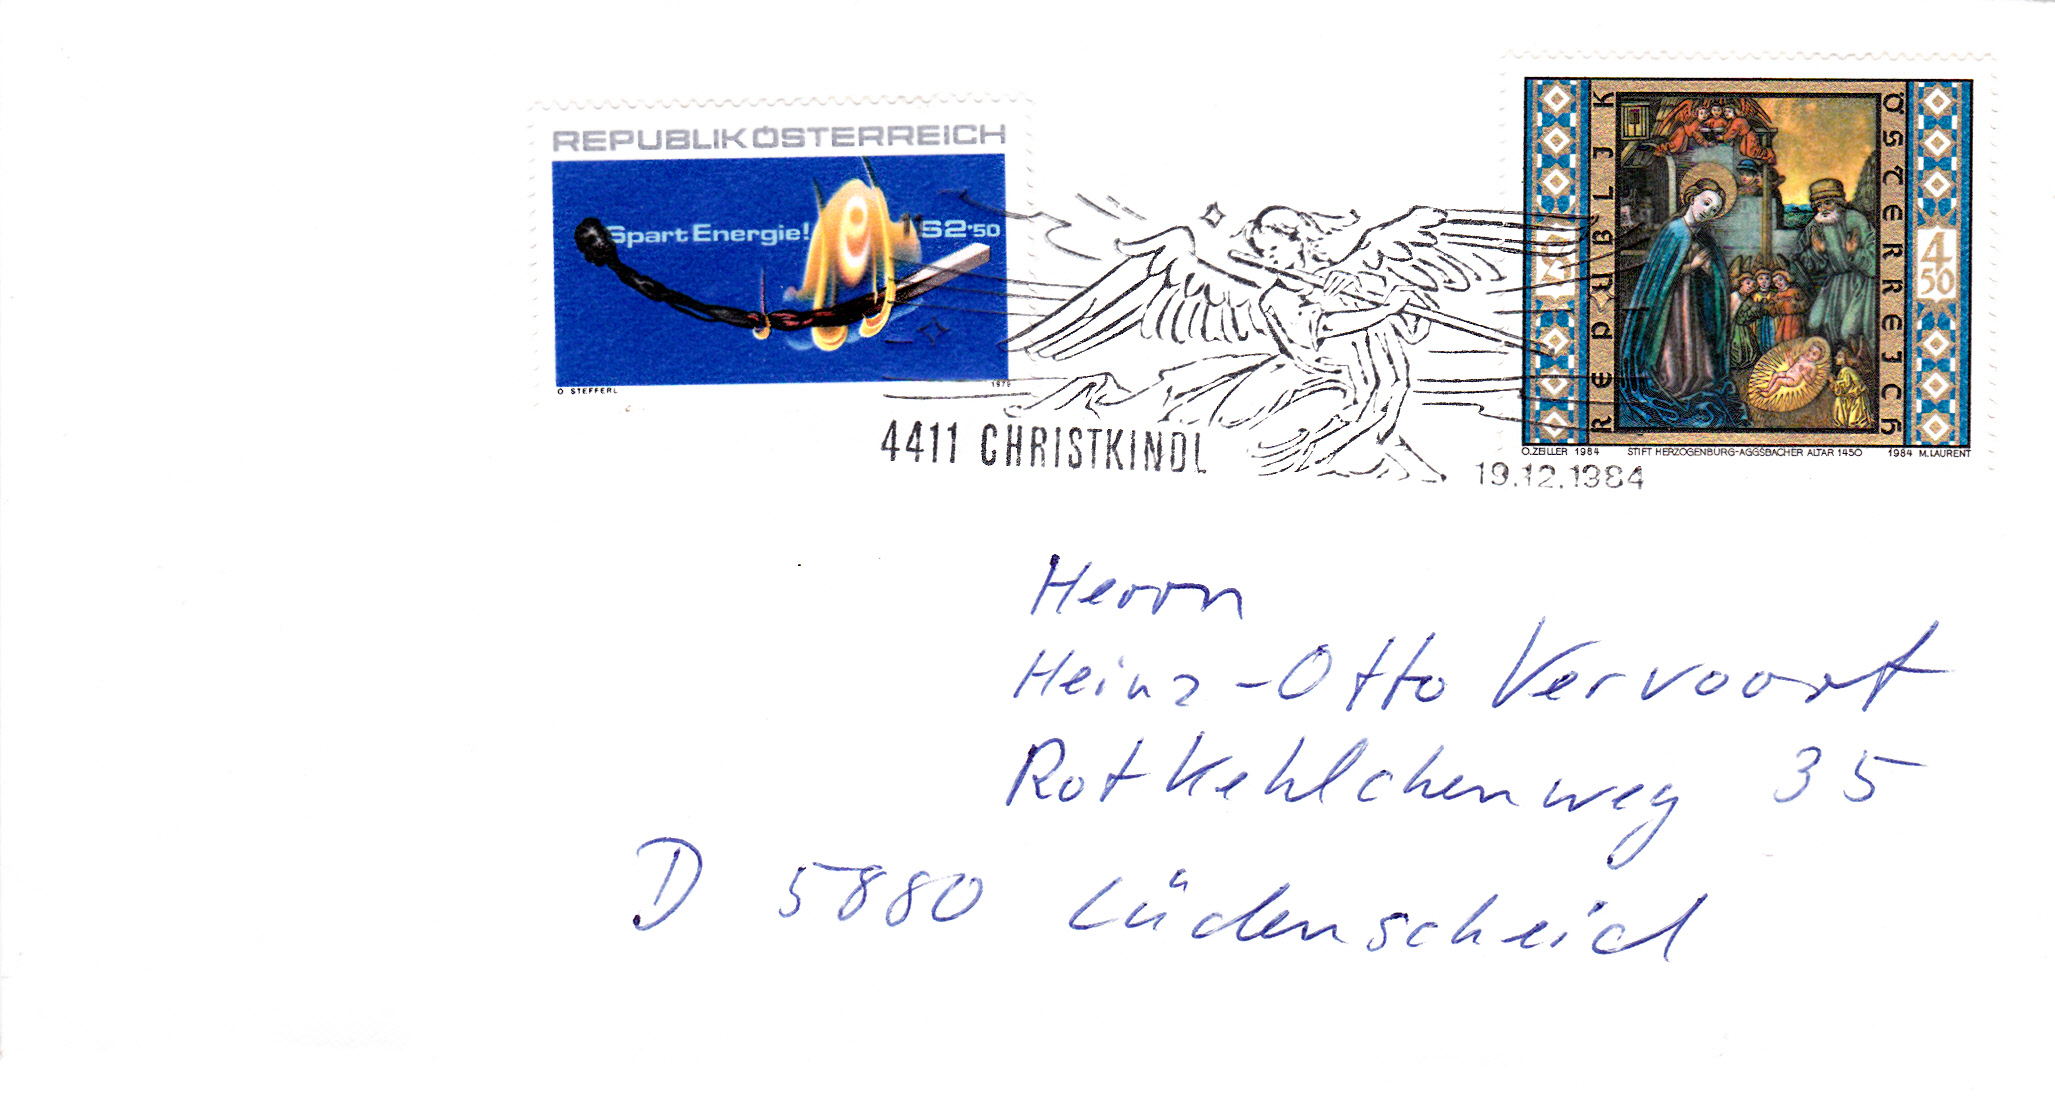 REPUBLIK ÖSTERREICH
Spart Energie! S2·50
O STEFFERL 1979
REPUBLIK ÖSTERREICH
S 4 50
O. ZEILLER 1984 STIFT HERZOGENBURG-AGGSBACHER ALTAR 1450 1984 M. LAURENT
4411 CHRISTKINDL 19.12.1984
Herrn
Heinz-Otto Vervoort
Rotkehlchenweg 35
D 5880 Lüdenscheid